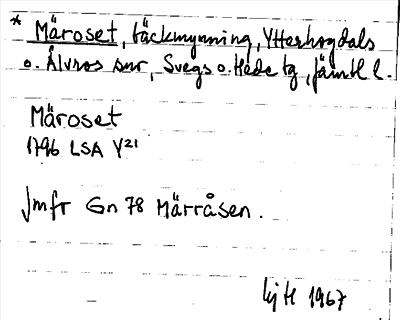 * Märoset, bäckmynning, Ytterhogdals
o. Älvros snr, Svegs o. Hede tg, Jämtl l.
Märoset
1796 LSA Y²¹
Jmfr Gn 78 Märråsen.
1967